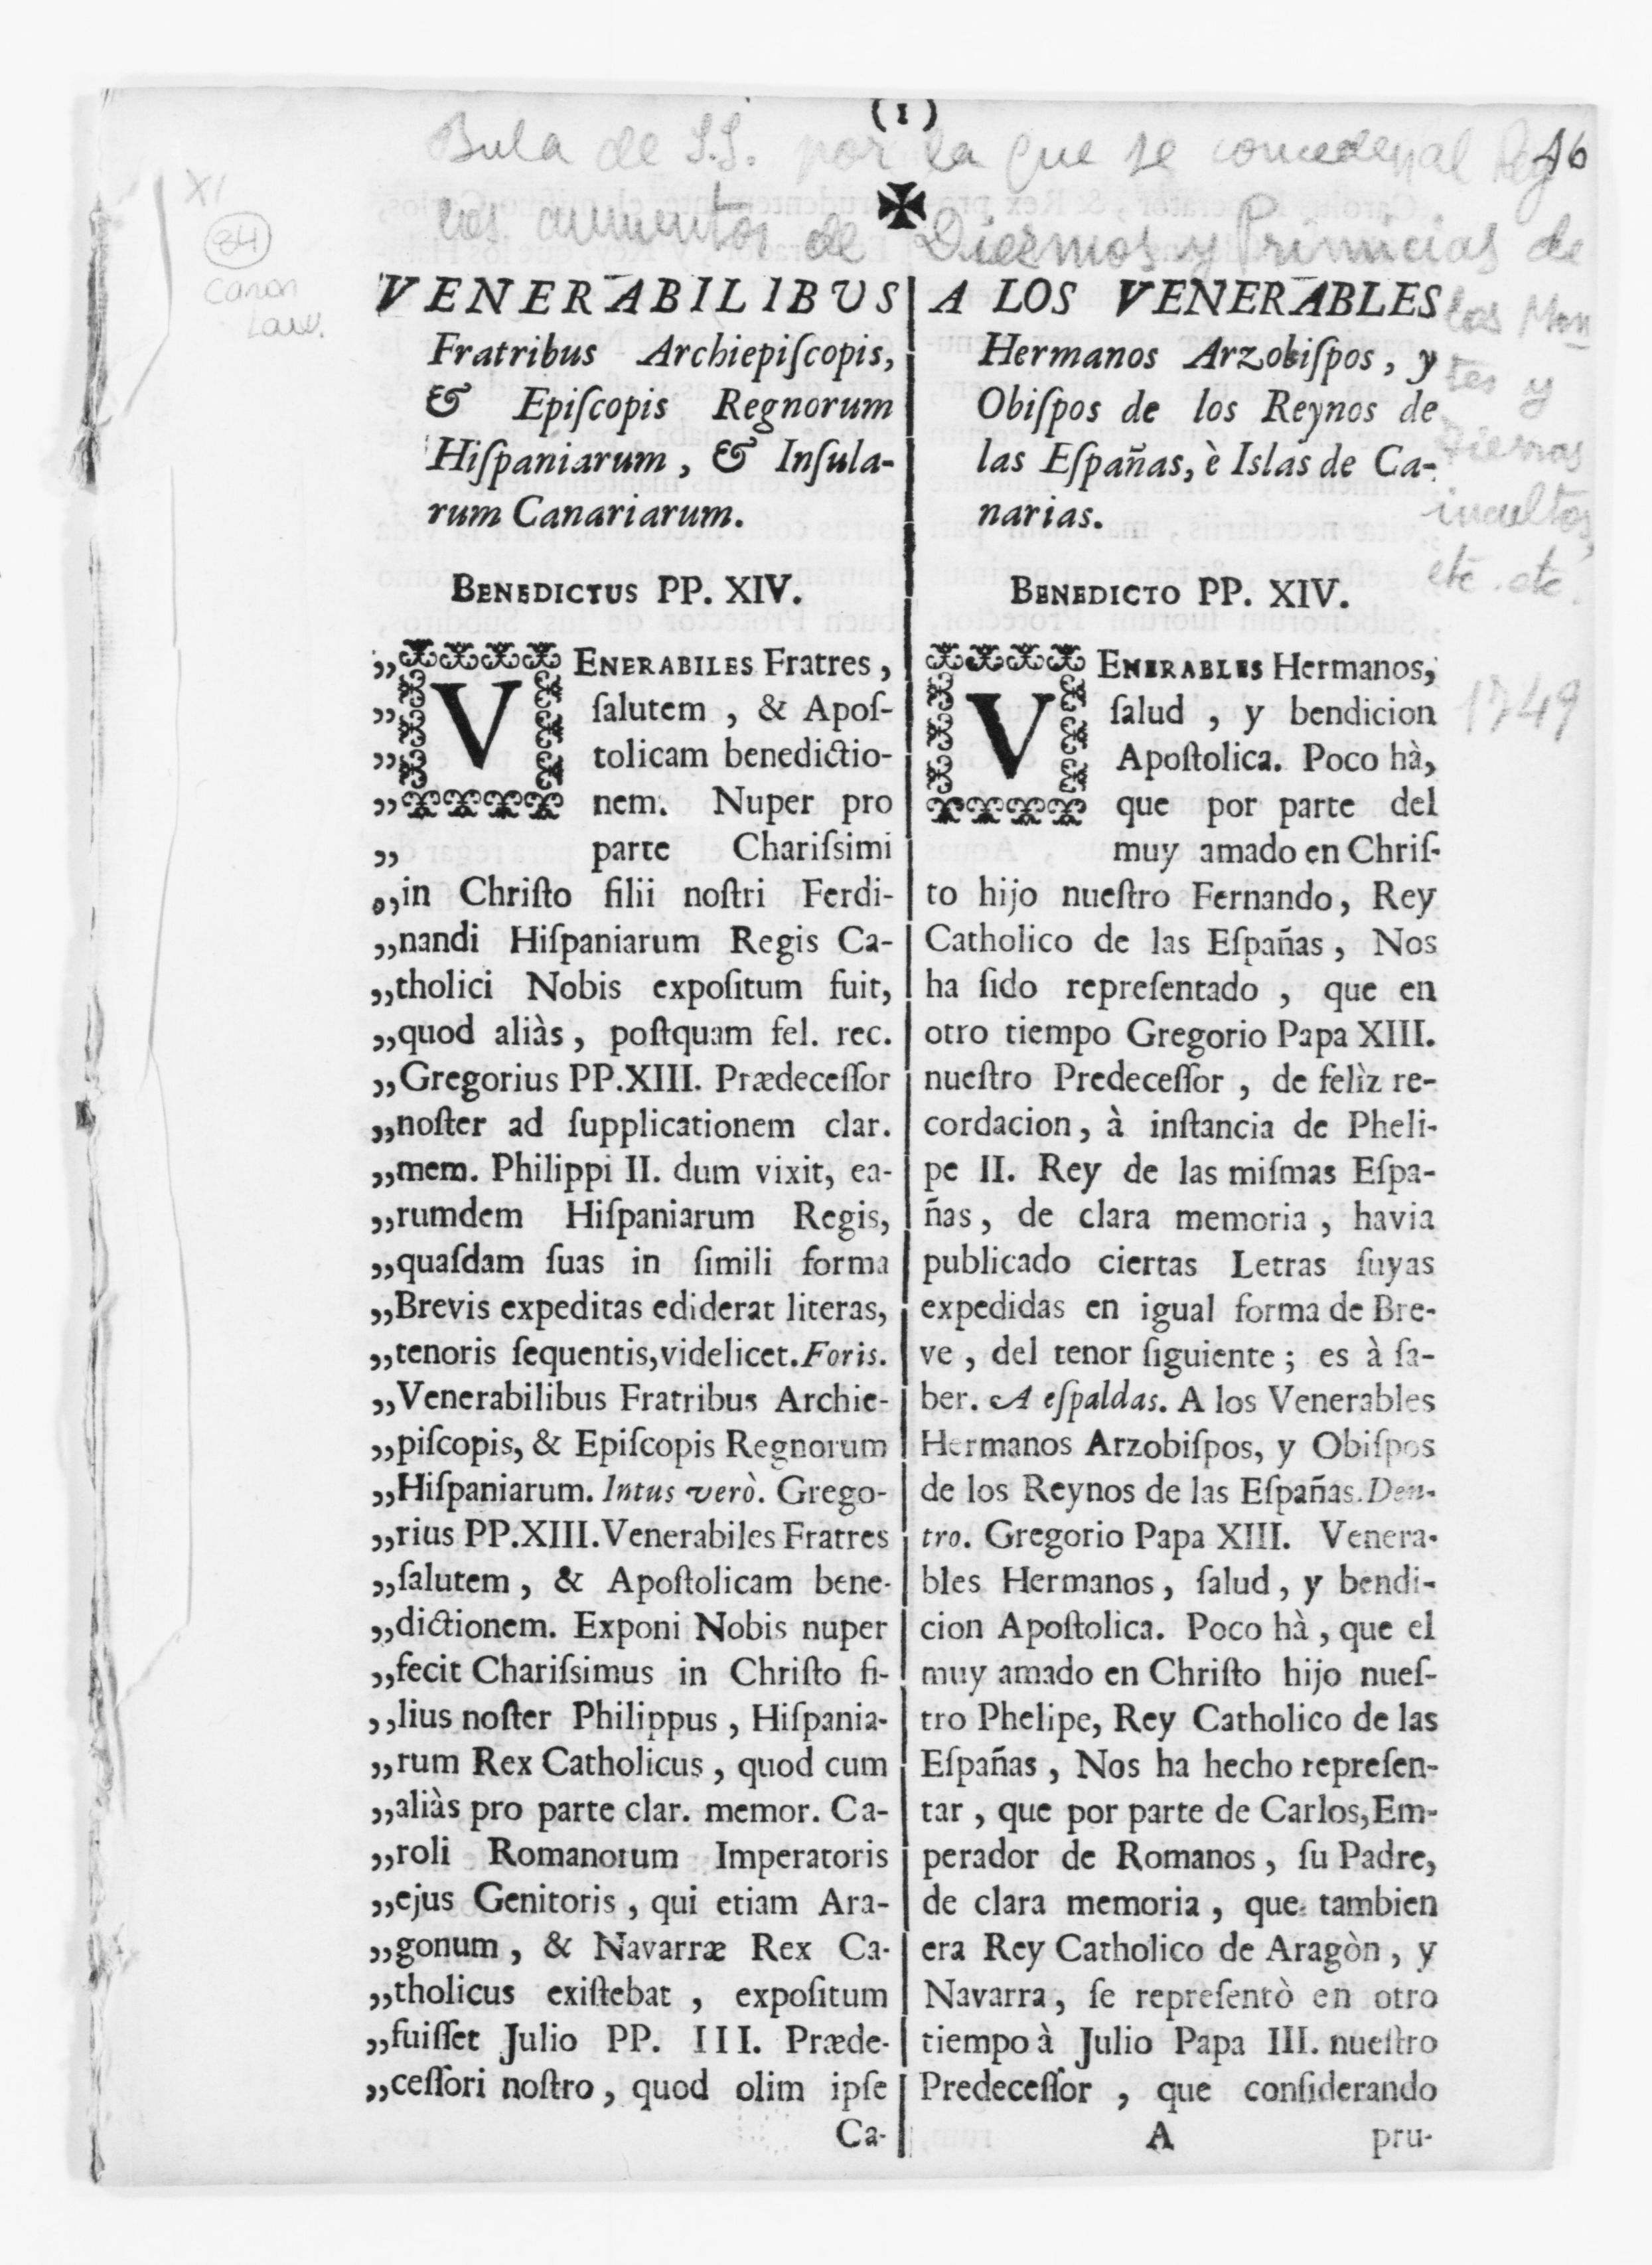 (1)
Bula de S.S. por la que se conceden al Rey
16
los aumentos de Diezmos y Primicias de
las Mon
tes y
Tierras
incultos,
etc. etc.
1749
XI
84
Canon
Law.
VENERABILIBUS
Fratribus Archiepiſcopis,
& Epiſcopis Regnorum
Hiſpaniarum, & Inſula-
rum Canariarum.
BENEDICTUS PP. XIV.
„VENERABILES Fratres,
„ſalutem, & Apoſ-
„tolicam benedictio-
„nem. Nuper pro
„parte Chariſsimi
„in Chriſto filii noſtri Ferdi-
„nandi Hiſpaniarum Regis Ca-
„tholici Nobis expoſitum fuit,
„quod aliàs, poſtquam fel. rec.
„Gregorius PP.XIII. Prædeceſſor
„noſter ad ſupplicationem clar.
„mem. Philippi II. dum vixit, ea-
„rumdem Hiſpaniarum Regis,
„quaſdam ſuas in ſimili forma
„Brevis expeditas ediderat literas,
„tenoris ſequentis,videlicet.Foris.
„Venerabilibus Fratribus Archie-
„piſcopis, & Epiſcopis Regnorum
„Hiſpaniarum. Intus verò. Grego-
„rius PP.XIII.Venerabiles Fratres
„ſalutem, & Apoſtolicam bene-
„dictionem. Exponi Nobis nuper
„fecit Chariſsimus in Chriſto fi-
„lius noſter Philippus, Hiſpania-
„rum Rex Catholicus, quod cum
„aliàs pro parte clar. memor. Ca-
„roli Romanorum Imperatoris
„ejus Genitoris, qui etiam Ara-
„gonum, & Navarræ Rex Ca-
„tholicus exiſtebat, expoſitum
„fuiſſet Julio PP. III. Præde-
„ceſſori noſtro, quod olim ipſe
Ca-
A LOS VENERABLES
Hermanos Arzobiſpos, y
Obiſpos de los Reynos de
las Eſpañas, è Islas de Ca-
narias.
BENEDICTO PP. XIV.
VENERABLES Hermanos,
ſalud, y bendicion
Apoſtolica. Poco hà,
que por parte del
muy amado en Chriſ-
to hijo nueſtro Fernando, Rey
Catholico de las Eſpañas, Nos
ha ſido repreſentado, que en
otro tiempo Gregorio Papa XIII.
nueſtro Predeceſſor, de felìz re-
cordacion, à inſtancia de Pheli-
pe II. Rey de las miſmas Eſpa-
ñas, de clara memoria, havia
publicado ciertas Letras ſuyas
expedidas en igual forma de Bre-
ve, del tenor ſiguiente; es à ſa-
ber. A eſpaldas. A los Venerables
Hermanos Arzobiſpos, y Obiſpos
de los Reynos de las Eſpañas.Den-
tro. Gregorio Papa XIII. Venera-
bles Hermanos, ſalud, y bendi-
cion Apoſtolica. Poco hà, que el
muy amado en Chriſto hijo nueſ-
tro Phelipe, Rey Catholico de las
Eſpañas, Nos ha hecho repreſen-
tar, que por parte de Carlos,Em-
perador de Romanos, ſu Padre,
de clara memoria, que tambien
era Rey Catholico de Aragòn, y
Navarra, ſe repreſentò en otro
tiempo à Julio Papa III. nueſtro
Predeceſſor, que conſiderando
A
pru-